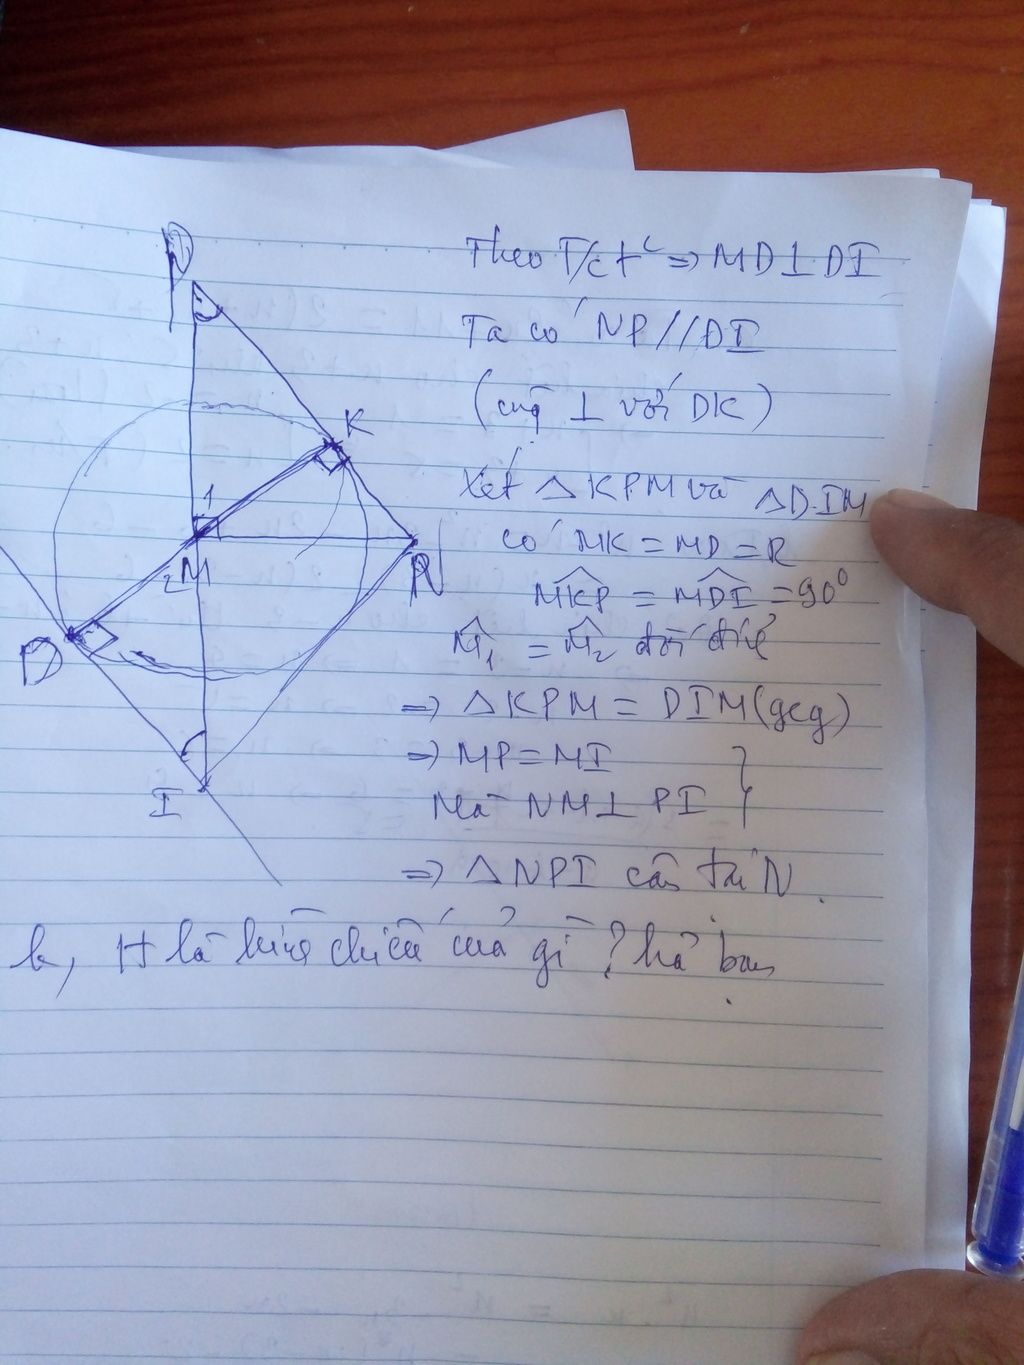 P
K
1
M
2
N
D
I
Theo T/c t² => MD ⊥ DI
Ta có NP // DI
(cùg ⊥ với DK)
Xét Δ KPM và Δ DIM
có MK = MD = R
MKP = MDI = 90⁰
M̂₁ = M̂₂ đối đỉnh
=> Δ KPM = DIM (gcg)
=> MP = MI
Mà NM ⊥ PI
=> Δ NPI cân tại N.
b, H là hình chiếu của gì ? hả bạn